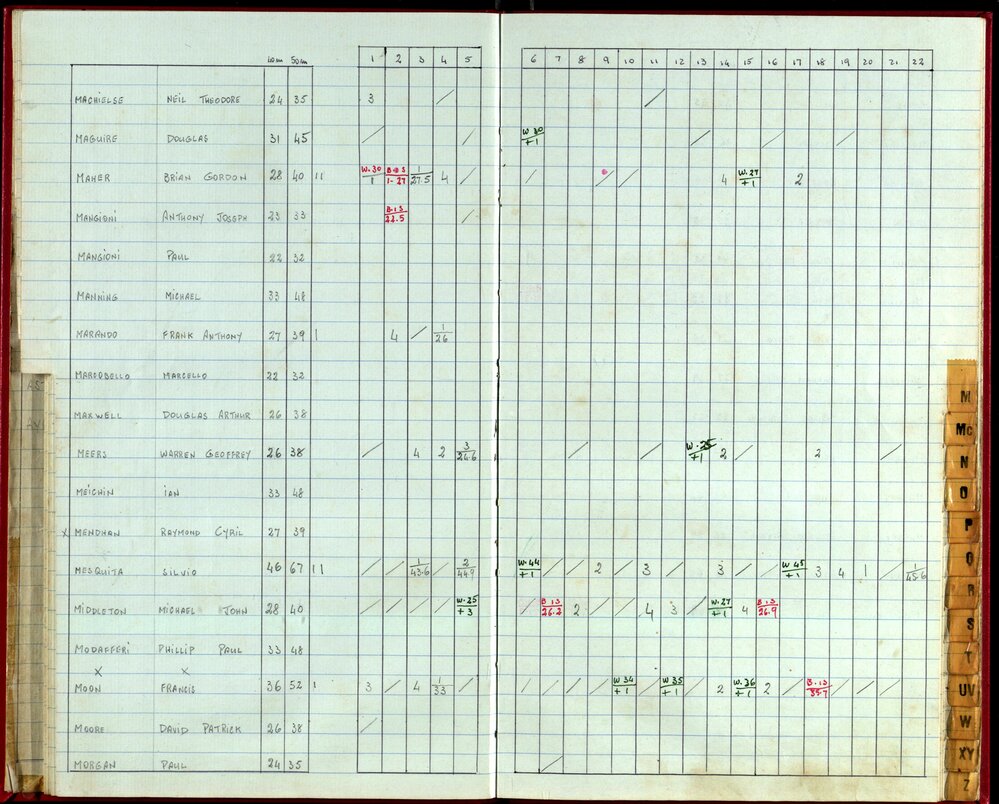 40m 50m 1 2 3 4 5 6 7 8 9 10 11 12 13 14 15 16 17 18 19 20 21 22
MACHIELSE NEIL THEODORE 24 35 3 / /
MAGUIRE DOUGLAS 31 45 / / W 30/+1 / / /
MAHER BRIAN GORDON 28 40 11 W.30/1 1-27 1/27.5 4 / / / / 4 W.27/+1 2
MANGIONI ANTHONY JOSEPH 23 33 B.1S/22.5 /
MANGIONI PAUL 22 32
MANNING MICHAEL 33 48
MARANDO FRANK ANTHONY 27 39 1 4 / 1/26
MARCOBELLO MARCELLO 22 32
MAXWELL DOUGLAS ARTHUR 26 38
MEERS WARREN GEOFFREY 26 38 / 4 2 3/26.6 / / W.25/+1 2 / 2 /
MEICHIN IAN 33 48
X MENDHAN RAYMOND CYRIL 27 39
MESQUITA SILVIO 46 67 11 / / 1/43.6 / 2/44.9 W.44/+1 / / 2 / 3 / / 3 / / W 45/+1 3 4 1 / 1/45.6
MIDDLETON MICHAEL JOHN 28 40 / / / / W.25/+3 / B 1S/26.2 2 / / 4 3 / W.27/+1 4 B 1S/26.9
MODAFFERI PHILLIP PAUL 33 48
X X
MOON FRANCIS 36 52 1 3 / 4 1/33 / / / / / W 34/+1 / W 35/+1 / 2 W.36/+1 2 / B.1S/35.7 / / /
MOORE DAVID PATRICK 26 38 /
MORGAN PAUL 24 35 /
M
Mc
N
O
P
Q
R
S
T
UV
W
XY
Z